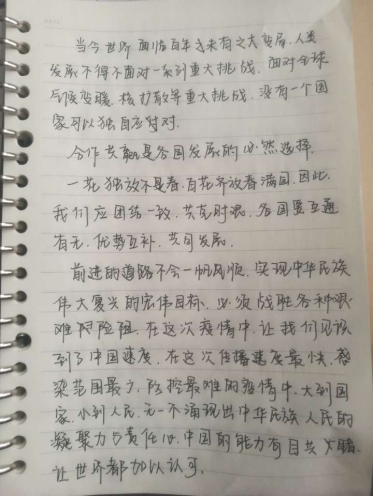 当今世界面临百年之未有之大变局,人类
发展不得不面对一系列重大挑战,面对全球
气候变暖,核扩散等重大挑战,没有一个国
家可以独自应付对.
合作共赢是各国发展的必然选择.
一花独放不是春,百花齐放春满园,因此,
我们应团结一致,共克时艰,各国要互通
有无,优势互补,共同发展.
前进的道路不会一帆风顺,实现中华民族
伟大复兴的宏伟目标,必须战胜各种艰
难险阻,在这次疫情中,让我们见识
到了中国速度,在这次传播速度最快,感
染范围最广,防控最难的疫情中,大到国
家,小到人民,无一不涌现出中华民族人民的
凝聚力与责任心,中国的能力有目共睹,
让世界都加以认可.